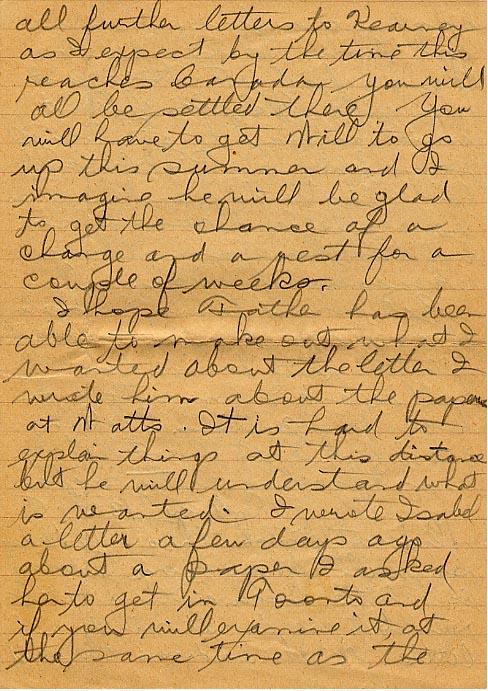 all further letters to Kearney
as I expect by the time this
reaches Canada you will
all be settled there. You
will have to get Will to go
up this summer and I
imagine he will be glad
to get the chance of a
change and a rest for a
couple of weeks.
I hope Father has been
able to make out what I
wanted about the letter I
wrote him about the papers
at Watts. It is hard to
explain things at this distance
but he will understand what
is wanted. I wrote Isabel
a letter a few days ago
about a paper I asked
her to get in Toronto and
if you will examine it, at
the same time as the